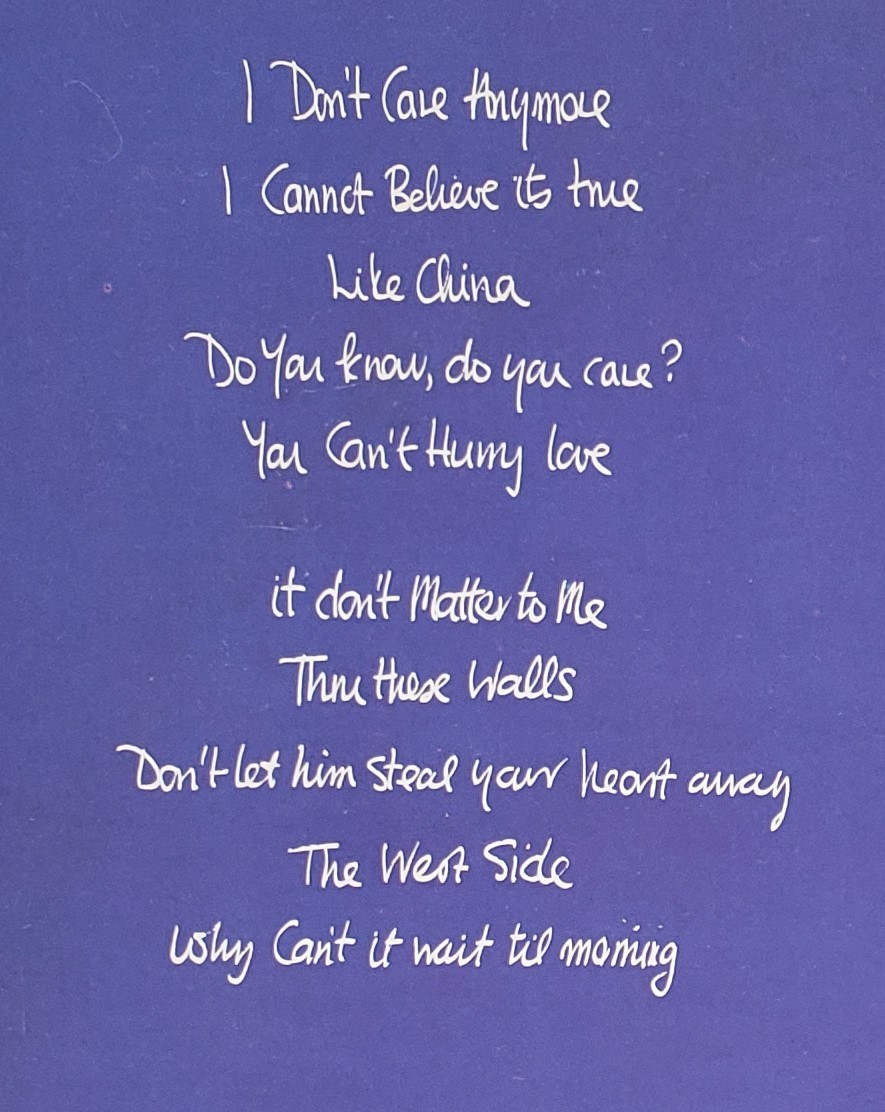 I Don't Care Anymore
I Cannot Believe its true
Like China
Do You know, do you care?
You Can't Hurry love
it don't Matter to Me
Thru these Walls
Don't let him steal your heart away
The West Side
Why Can't it wait til morning